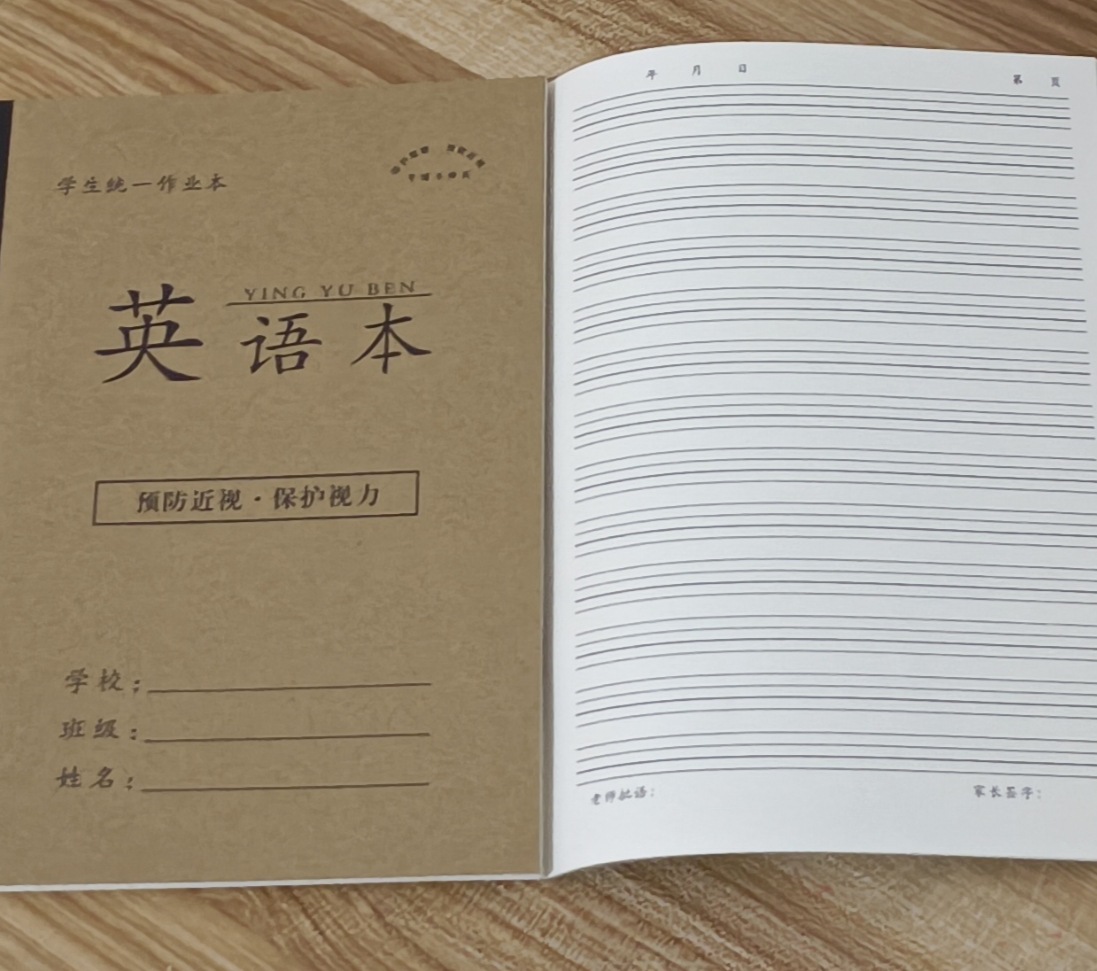 学生统一作业本
YING YU BEN
英语本
预防近视·保护视力
学校：
班级：
姓名：
年 月 日
第 页
老师批语：
家长签字：